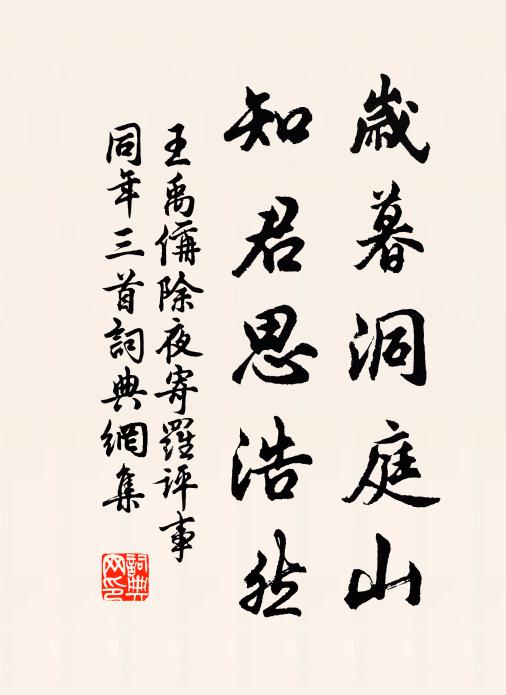 歲暮洞庭山
知君思浩然
王禹偁除夜寄羅評事
同年三首詞典網集
詞典
网印